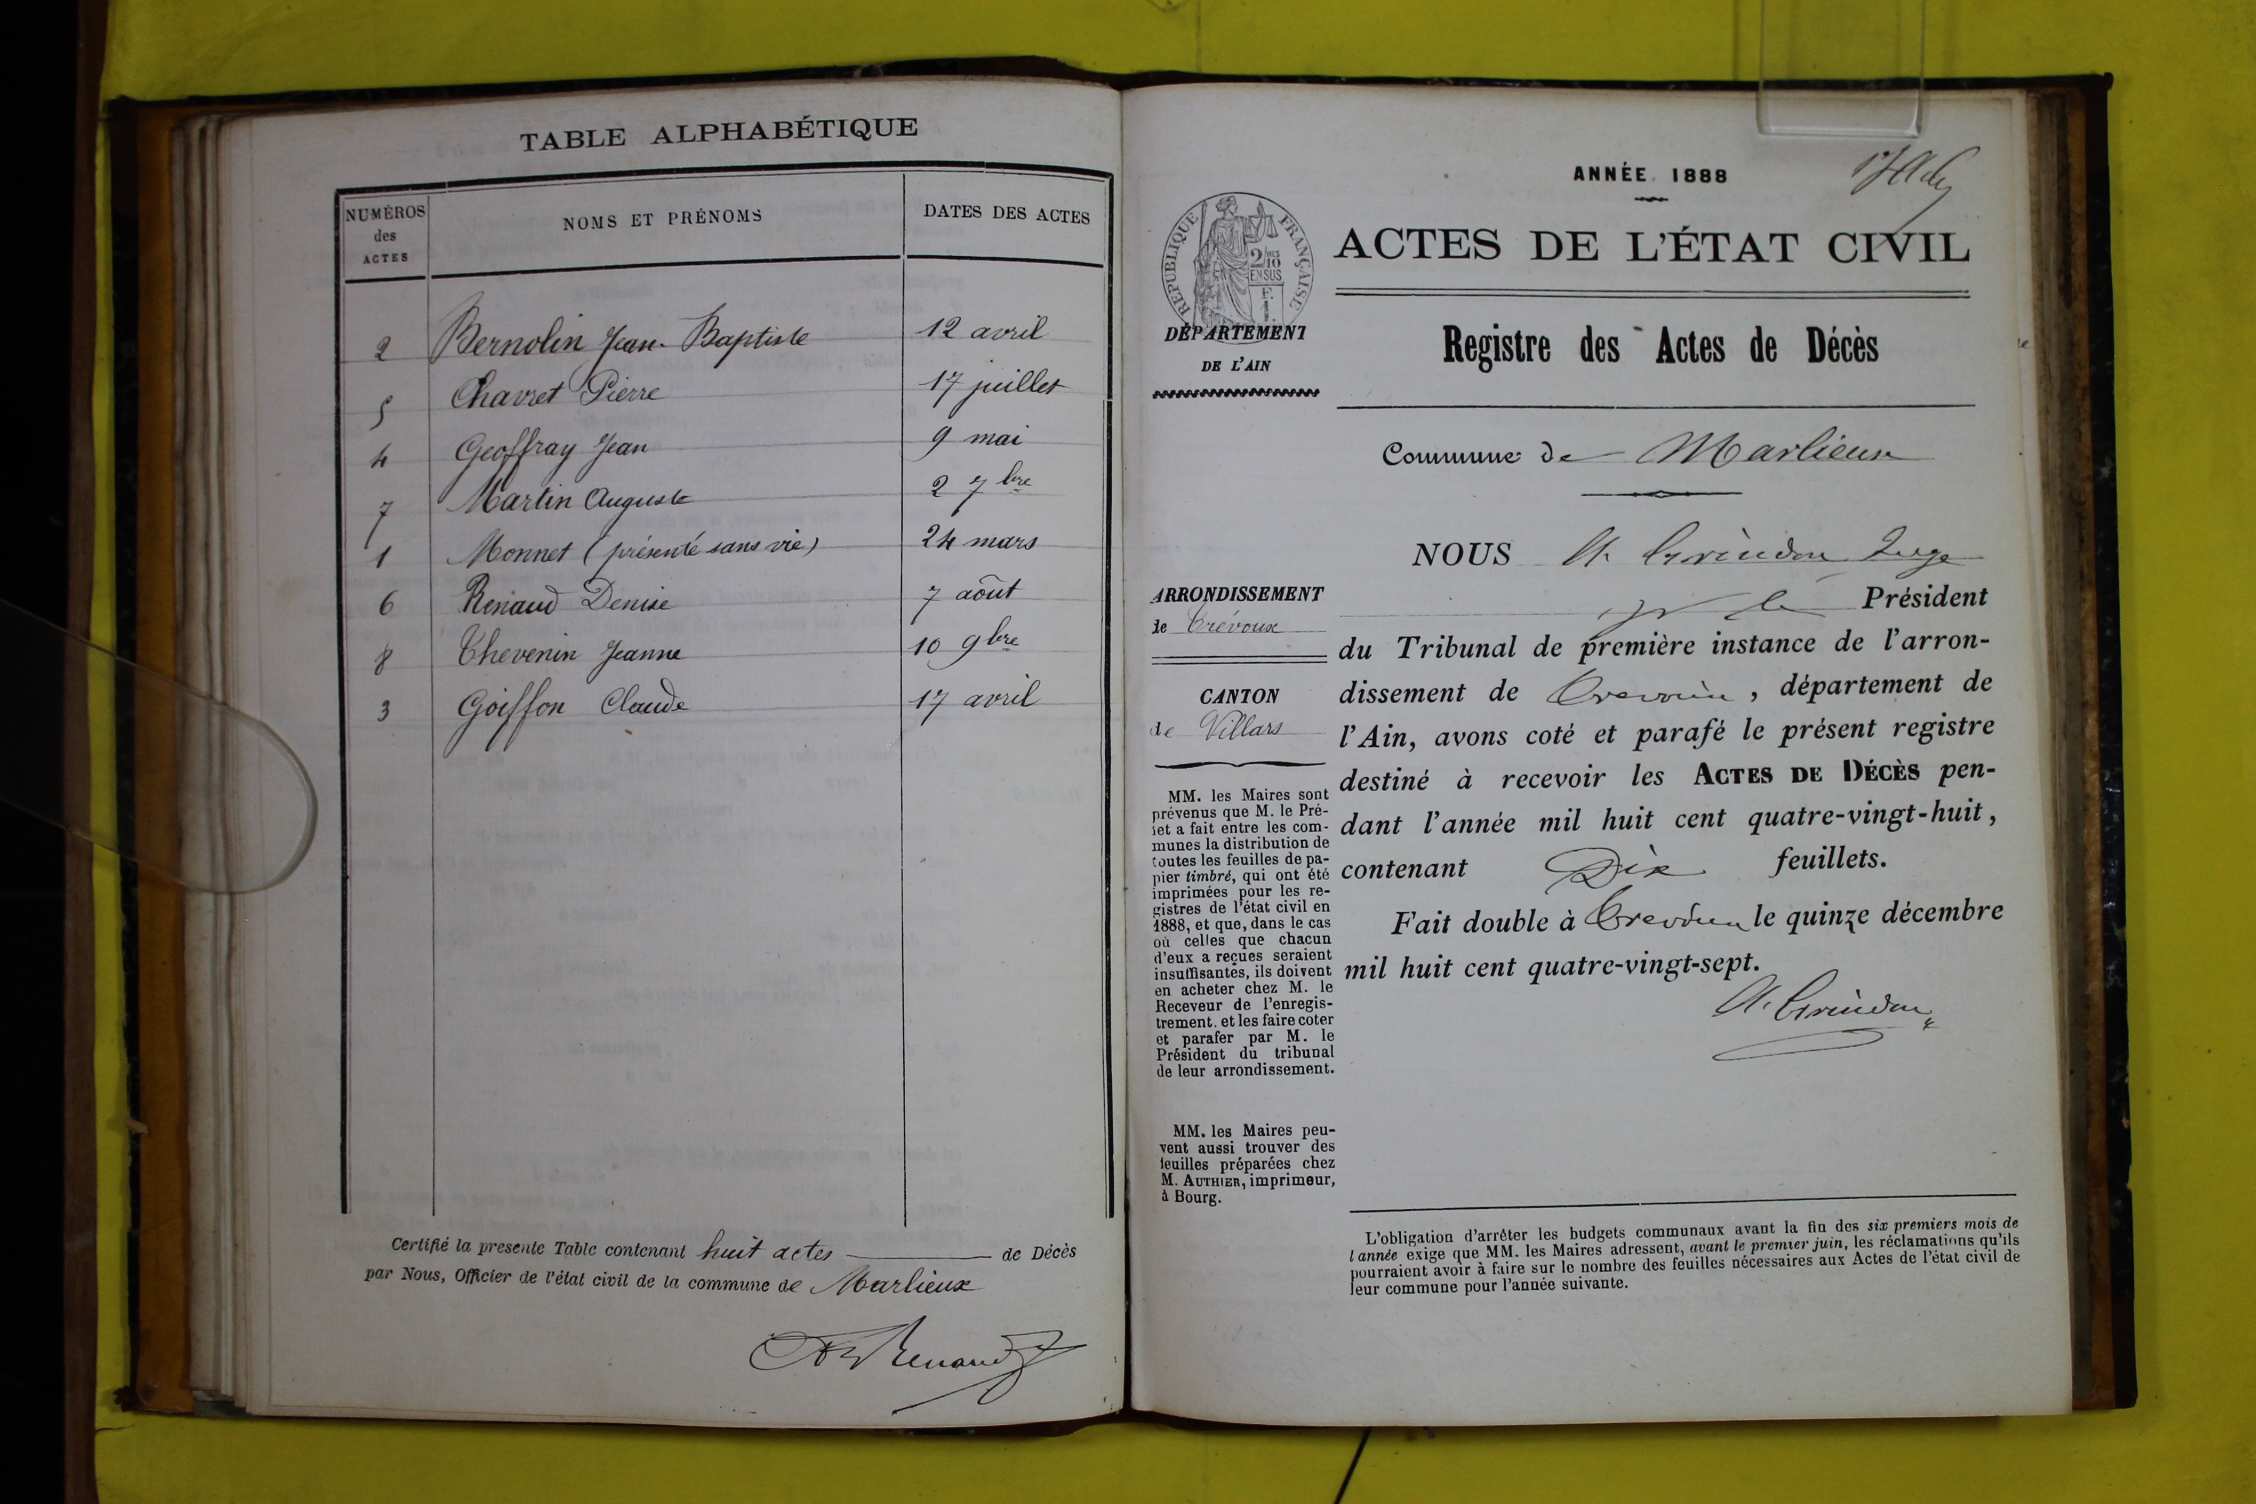 TABLE ALPHABÉTIQUE
NUMÉROS des ACTES NOMS ET PRÉNOMS DATES DES ACTES
2 Bernolin Jean-Baptiste 12 avril
5 Chavret Pierre 17 juillet
4 Geoffray Jean 9 mai
7 Martin Auguste 2 7bre
1 Monnet (présenté sans vie) 24 mars
6 Renaud Denise 7 août
8 Thevenin Jeanne 10 9bre
3 Goiffon Claude 17 avril
Certifié la présente Table contenant huit actes de Décès
par Nous, Officier de l'état civil de la commune de Marlieux
Renaud
ANNÉE 1888
ACTES DE L'ÉTAT CIVIL
RÉPUBLIQUE FRANÇAISE
2/10
EN SUS
F.
1.
DÉPARTEMENT
DE L'AIN
Registre des Actes de Décès
Commune de Marlieux
ARRONDISSEMENT
de Trévoux
CANTON
de Villars
MM. les Maires sont
prévenus que M. le Pré-
fet a fait entre les com-
munes la distribution de
toutes les feuilles de pa-
pier timbré, qui ont été
imprimées pour les re-
gistres de l'état civil en
1888, et que, dans le cas
où celles que chacun
d'eux a reçues seraient
insuffisantes, ils doivent
en acheter chez M. le
Receveur de l'enregis-
trement. et les faire coter
et parafer par M. le
Président du tribunal
de leur arrondissement.
MM. les Maires peu-
vent aussi trouver des
feuilles préparées chez
M. AUTHIER, imprimeur,
à Bourg.
NOUS A. Grindon Juge
Président
du Tribunal de première instance de l'arron-
dissement de Trevoux, département de
l'Ain, avons coté et parafé le présent registre
destiné à recevoir les ACTES DE DÉCÈS pen-
dant l'année mil huit cent quatre-vingt-huit,
contenant Dix feuillets.
Fait double à Trevoux le quinze décembre
mil huit cent quatre-vingt-sept.
A. Grindon
L'obligation d'arrêter les budgets communaux avant la fin des six premiers mois de
l'année exige que MM. les Maires adressent, avant le premier juin, les réclamations qu'ils
pourraient avoir à faire sur le nombre des feuilles nécessaires aux Actes de l'état civil de
leur commune pour l'année suivante.